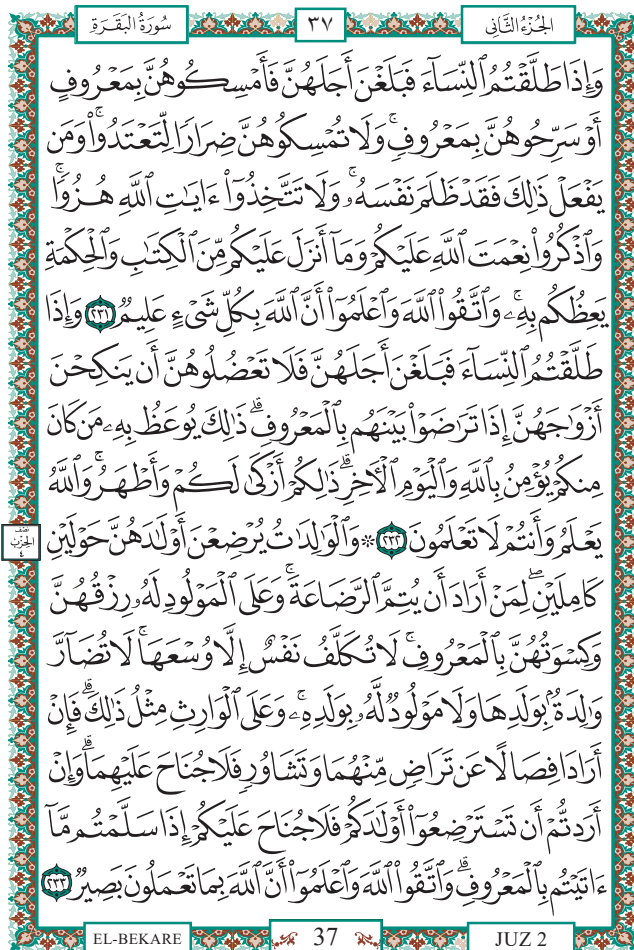 سُورَةُ البَقَرَةِ ٣٧ الجُزْءُ الثَّانِي
وَإِذَا طَلَّقْتُمُ ٱلنِّسَآءَ فَبَلَغْنَ أَجَلَهُنَّ فَأَمْسِكُوهُنَّ بِمَعْرُوفٍ
أَوْ سَرِّحُوهُنَّ بِمَعْرُوفٖۚ وَلَا تُمْسِكُوهُنَّ ضِرَارٗا لِّتَعْتَدُواْۚ وَمَن
يَفْعَلْ ذَٰلِكَ فَقَدْ ظَلَمَ نَفْسَهُۥۚ وَلَا تَتَّخِذُوٓاْ ءَايَٰتِ ٱللَّهِ هُزُوٗاۚ
وَٱذْكُرُواْ نِعْمَتَ ٱللَّهِ عَلَيْكُمْ وَمَآ أَنزَلَ عَلَيْكُم مِّنَ ٱلْكِتَٰبِ وَٱلْحِكْمَةِ
يَعِظُكُم بِهِۦۚ وَٱتَّقُواْ ٱللَّهَ وَٱعْلَمُوٓاْ أَنَّ ٱللَّهَ بِكُلِّ شَىْءٍ عَلِيمٌ ٢٣١ وَإِذَا
طَلَّقْتُمُ ٱلنِّسَآءَ فَبَلَغْنَ أَجَلَهُنَّ فَلَا تَعْضُلُوهُنَّ أَن يَنكِحْنَ
أَزْوَٰجَهُنَّ إِذَا تَرَٰضَوْاْ بَيْنَهُم بِٱلْمَعْرُوفِۗ ذَٰلِكَ يُوعَظُ بِهِۦ مَن كَانَ
مِنكُمْ يُؤْمِنُ بِٱللَّهِ وَٱلْيَوْمِ ٱلْأٓخِرِۗ ذَٰلِكُمْ أَزْكَىٰ لَكُمْ وَأَطْهَرُۚ وَٱللَّهُ
يَعْلَمُ وَأَنتُمْ لَا تَعْلَمُونَ ٢٣٢ ۞ وَٱلْوَٰلِدَٰتُ يُرْضِعْنَ أَوْلَٰدَهُنَّ حَوْلَيْنِ
نصف الحزب ٤
كَامِلَيْنِۖ لِمَنْ أَرَادَ أَن يُتِمَّ ٱلرَّضَاعَةَۚ وَعَلَى ٱلْمَوْلُودِ لَهُۥ رِزْقُهُنَّ
وَكِسْوَتُهُنَّ بِٱلْمَعْرُوفِۚ لَا تُكَلَّفُ نَفْسٌ إِلَّا وُسْعَهَاۚ لَا تُضَآرَّ
وَٰلِدَةٌۢ بِوَلَدِهَا وَلَا مَوْلُودٞ لَّهُۥ بِوَلَدِهِۦۚ وَعَلَى ٱلْوَارِثِ مِثْلُ ذَٰلِكَۗ فَإِنْ
أَرَادَا فِصَالًا عَن تَرَاضٖ مِّنْهُمَا وَتَشَاوُرٖ فَلَا جُنَاحَ عَلَيْهِمَاۗ وَإِنْ
أَرَدتُّمْ أَن تَسْتَرْضِعُوٓاْ أَوْلَٰدَكُمْ فَلَا جُنَاحَ عَلَيْكُمْ إِذَا سَلَّمْتُم مَّآ
ءَاتَيْتُم بِٱلْمَعْرُوفِۗ وَٱتَّقُواْ ٱللَّهَ وَٱعْلَمُوٓاْ أَنَّ ٱللَّهَ بِمَا تَعْمَلُونَ بَصِيرٌ ٢٣٣
EL-BEKARE 37 JUZ 2